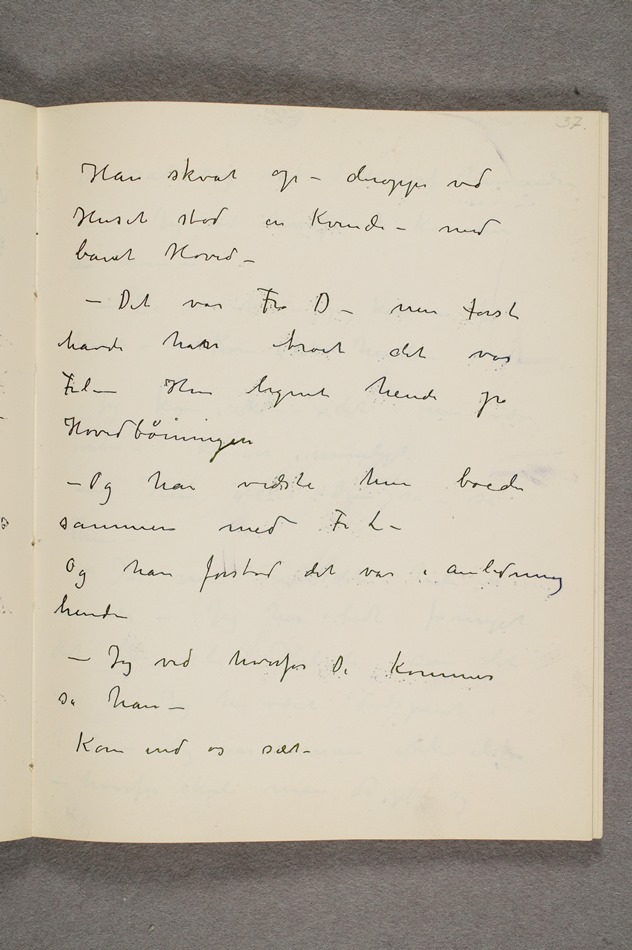 37.
Han skvat op – deroppe ved
Huset stod en Kvinde – med
baret Hoved –
– Det var Frø D – men først
havde han troet det var
Frl – Hun lignet hende på
Hovedbøiningen
– Og han vidste hun boede
sammen med Fr L –
Og han forstod det var i anledning
hende
– Jeg ved hvorfor De kommer
sa han –
Kom ind og sæt –